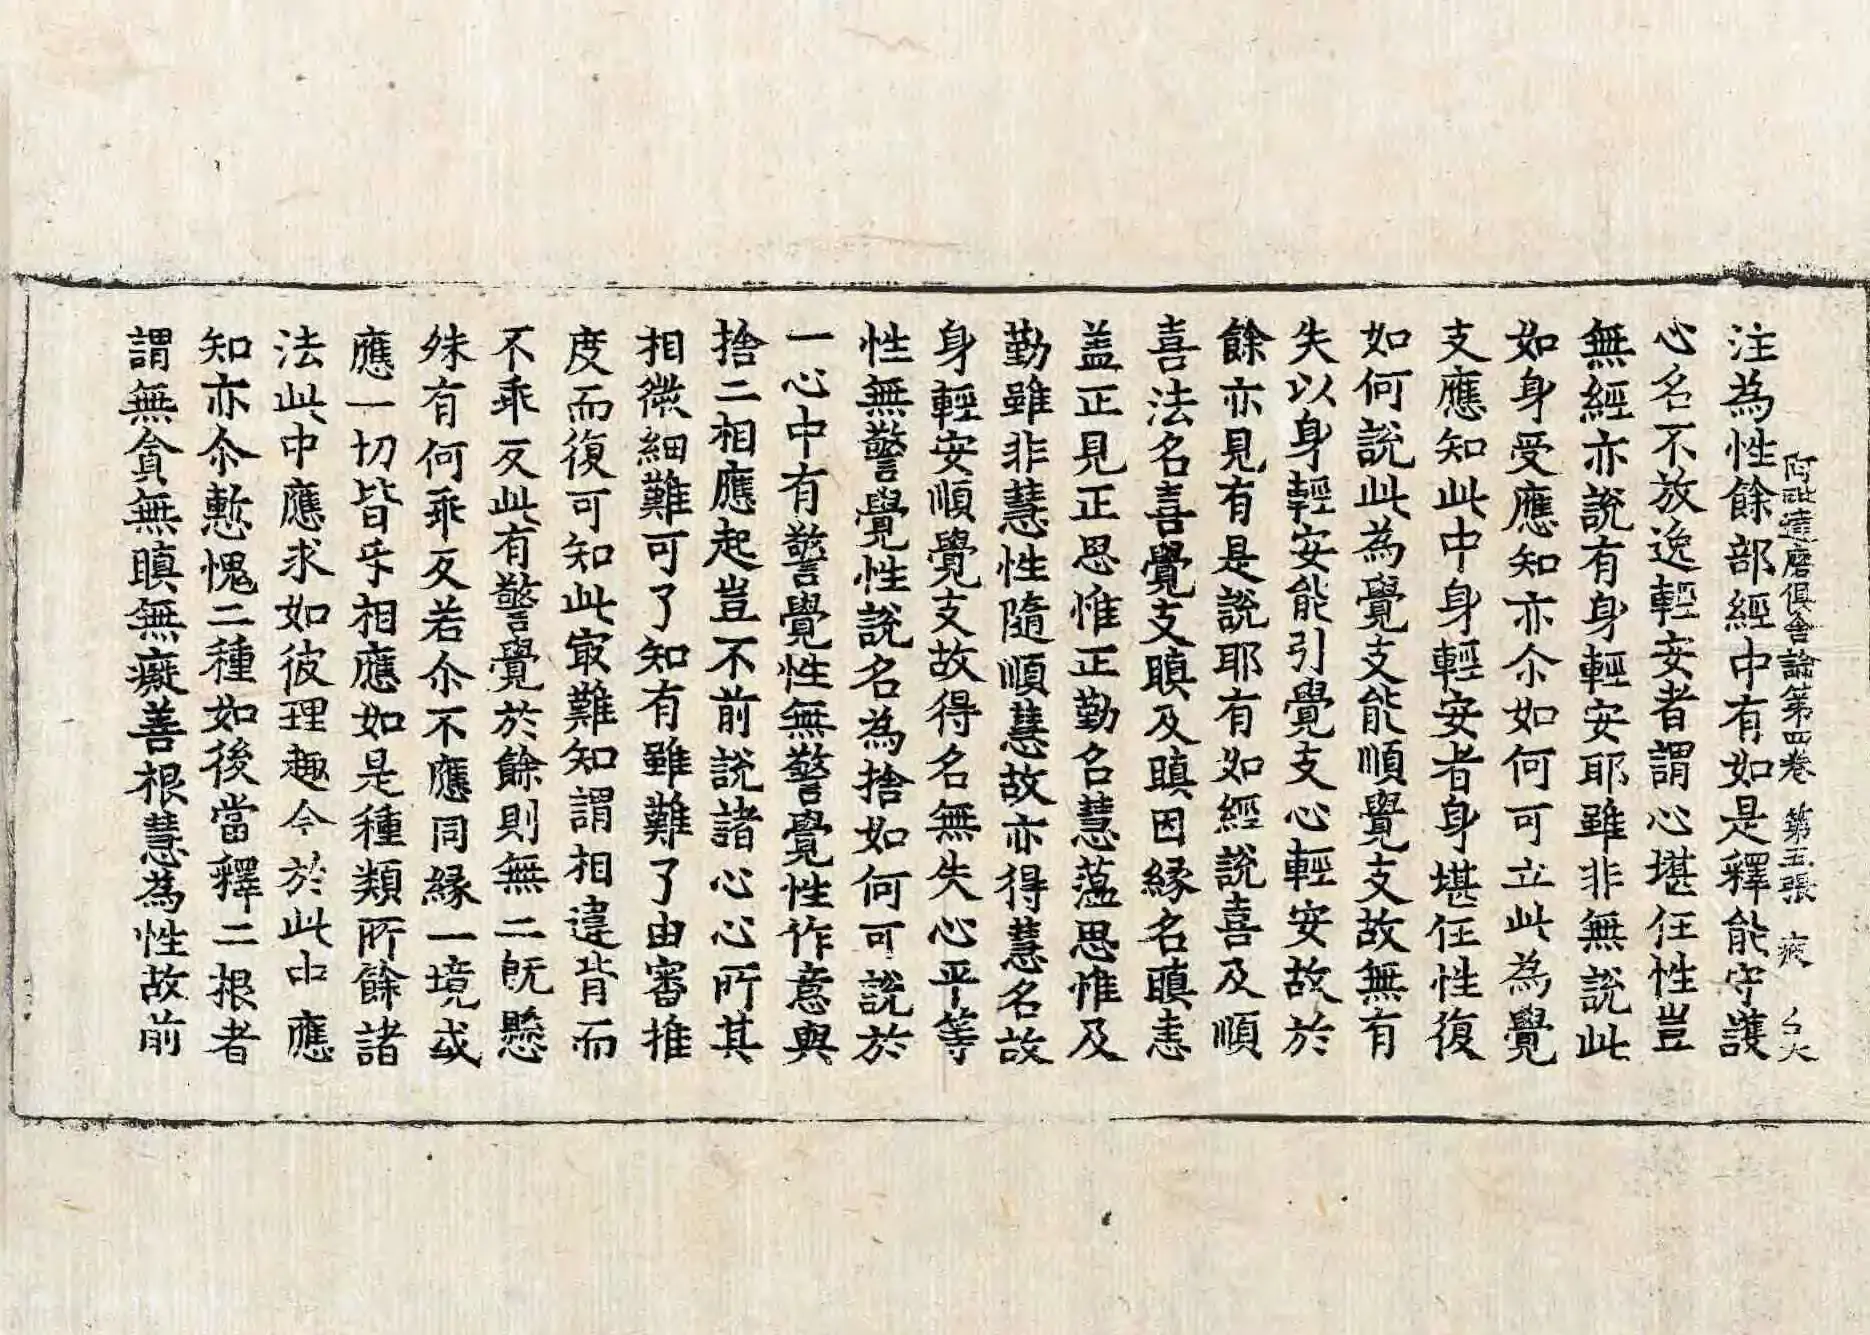 阿毗達磨俱舍論第四卷 第五張 疲
注為性餘部經中有如是釋能守護
心名不放逸輕安者謂心堪任性豈
無經亦說有身輕安耶雖非無說此
如身受應知亦尒如何可立此為覺
支應知此中身輕安者身堪任性復
如何說此為覺支能順覺支故無有
失以身輕安能引覺支心輕安故於
餘亦見有是說耶有如經說喜及順
喜法名喜覺支瞋及瞋因緣名瞋恚
盖正見正思惟正勤名慧蘊思惟及
勤雖非慧性隨順慧故亦得慧名故
身輕安順覺支故得名無失心平等
性無警覺性說名為捨如何可說於
一心中有警覺性無警覺性作意與
捨二相應起豈不前說諸心心所其
相微細難可了知有雖難了由審推
度而復可知此㝡難知謂相違背而
不乖反此有警覺於餘則無二旣懸
殊有何乖反若尒不應同緣一境或
應一切皆𠀌相應如是種類所餘諸
法此中應求如彼理趣今於此中應
知亦尒慙愧二種如後當釋二根者
謂無貪無瞋無癡善根慧為性故前